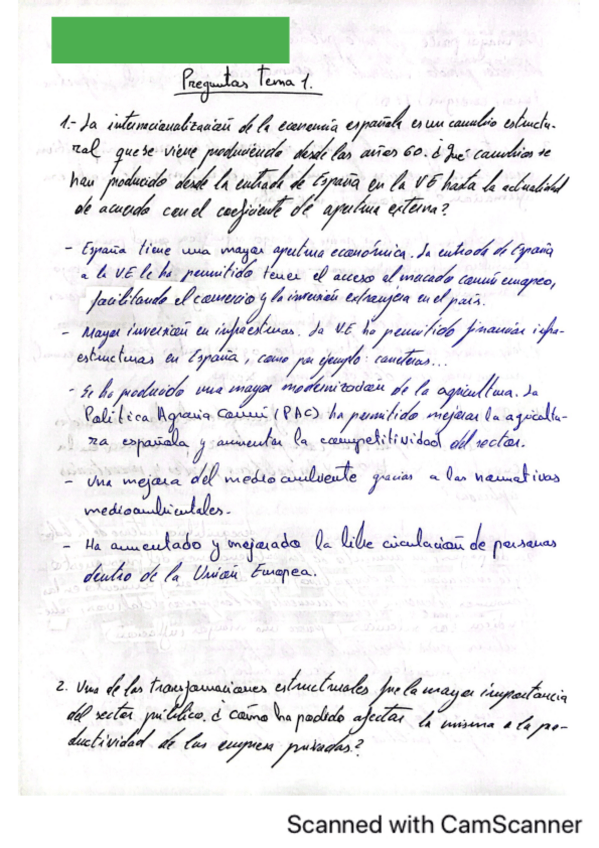 Preguntas Tema 1.
1.- La internacionalización de la economía española es un cambio estructu-
ral que se viene produciendo desde los años 60. ¿Qué cambios se
han producido desde la entrada de España en la UE hasta la actualidad
de acuerdo con el coeficiente de apertura externa?
- España tiene una mayor apertura económica. La entrada de España
a la UE le ha permitido tener el acceso al mercado común europeo,
facilitando el comercio y la inversión extranjera en el país.
- Mayor inversión en infraestruras. La UE ha permitido financiar infra-
estructuras en España, como por ejemplo: carreteras...
- Se ha producido una mayor modernización de la agricultura. La
Política Agraria Común (PAC) ha permitido mejorar la agricultu-
ra española y aumentar la competitividad del sector.
- Una mejora del medio ambiente gracias a las normativas
medioambientales.
- Ha aumentado y mejorado la libre circulación de personas
dentro de la Unión Europea.
2. Una de las transformaciones estructurales fue la mayor importancia
del sector público. ¿Cómo ha podido afectar la misma a la pro-
ductividad de las empresa privadas?
Scanned with CamScanner